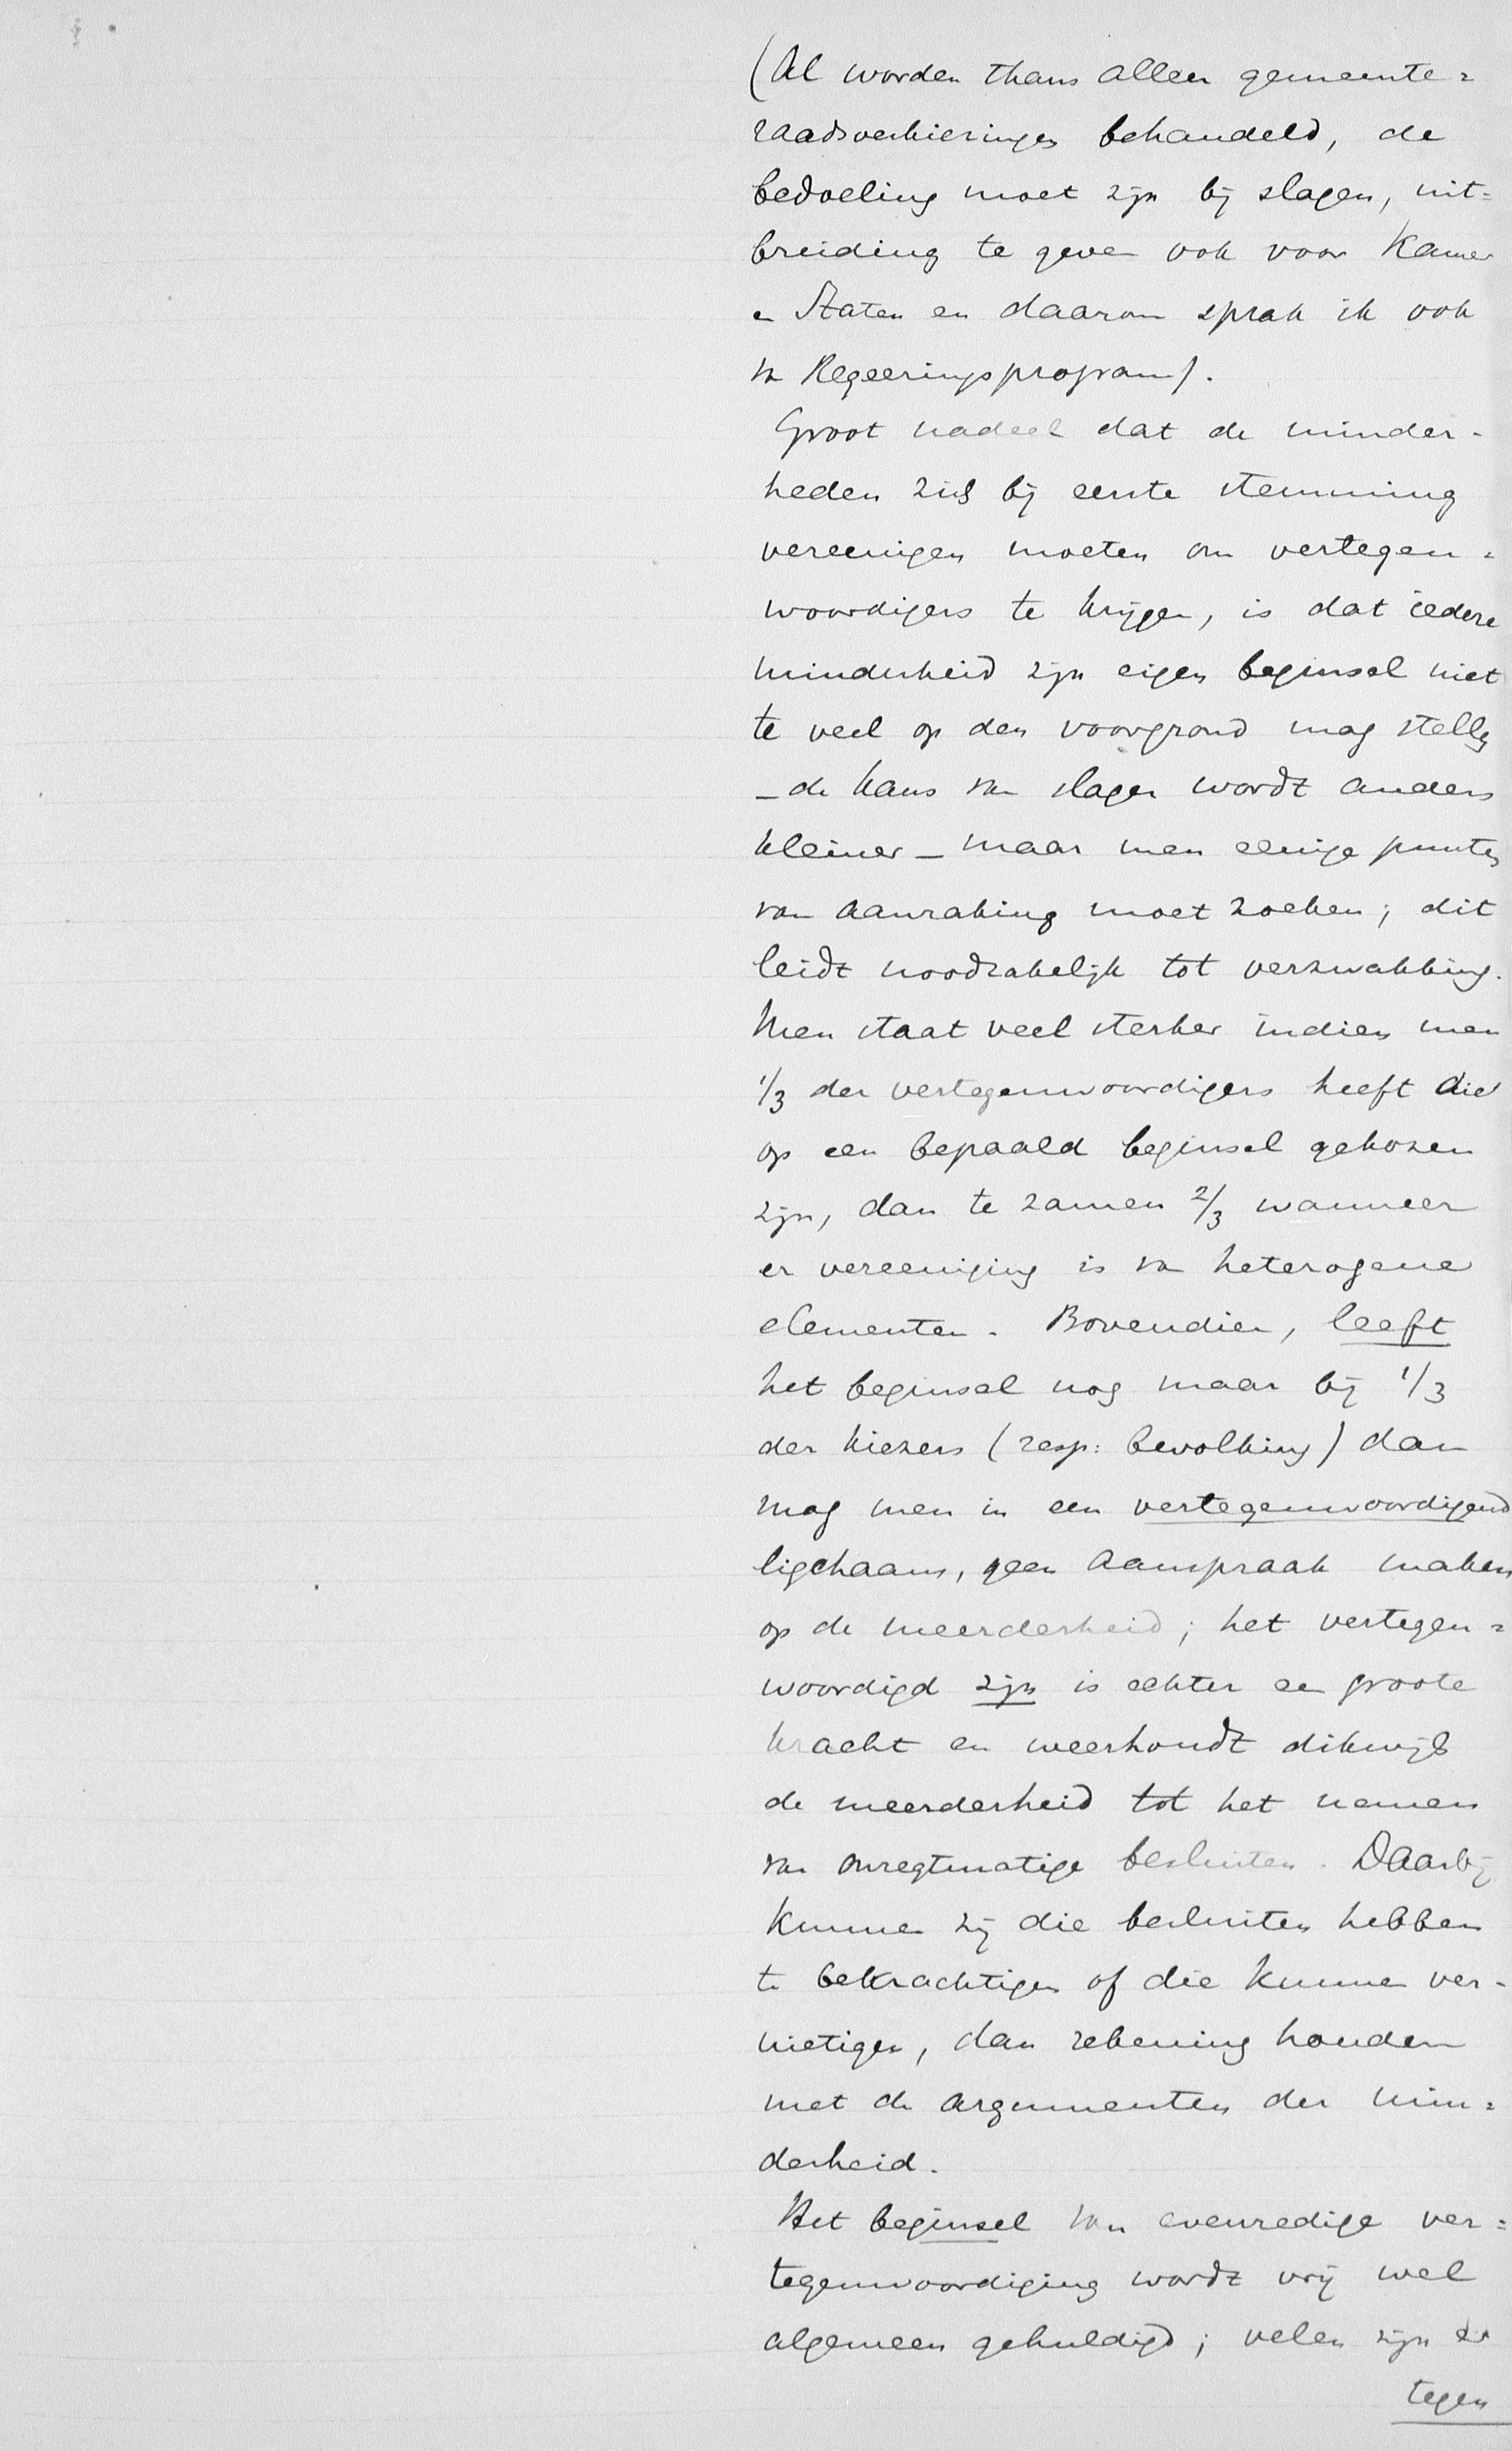 (Al worden thans alleen gemeente=
raadsverkiezingen behandeld, de
bedoeling moet zijn bij slagen, uit=
breiding te geven ook voor Kamer
en Staten en daarom sprak ik ook
van Regeeringsprogram).
Groot nadeel dat de minder-
heden zich bij eerste stemming
vereenigen moeten om vertegen=
woordigers te krijgen, is dat iedere
minderheid zijn eigen beginsel niet
te veel op den voorgrond mag stellen
- de kans van slagen wordt anders
kleiner - maar men eenige punten
van aanraking moet zoeken; dit
leidt noodzakelijk tot verzwakking.
Men staat veel sterker indien men
1/3 der vertegenwoordigers heeft die
op een bepaald beginsel gekozen
zijn, dan te zamen 2/3 wanneer
er vereeniging is van heterogene
elementen. Bovendien, leeft
het beginsel nog maar bij 1/3
der kiezers (resp: bevolking) dan
mag men in een vertegenwoordigend
ligchaam, geen aanspraak maken
op de meerderheid; het vertegen=
woordigd zijn is echter een groote
kracht en weerhoudt dikwijls
de meerderheid tot het nemen
van onregtmatige besluiten. Daarbij
kunnen zij die besluiten hebben
te bekrachtigen of die kunnen ver-
nietigen, dan rekening houden
met de argumenten der min=
derheid.
Het beginsel van evenredige ver=
tegenwoordiging wordt vrij wel
algemeen gehuldigd; velen zijn er
tegen